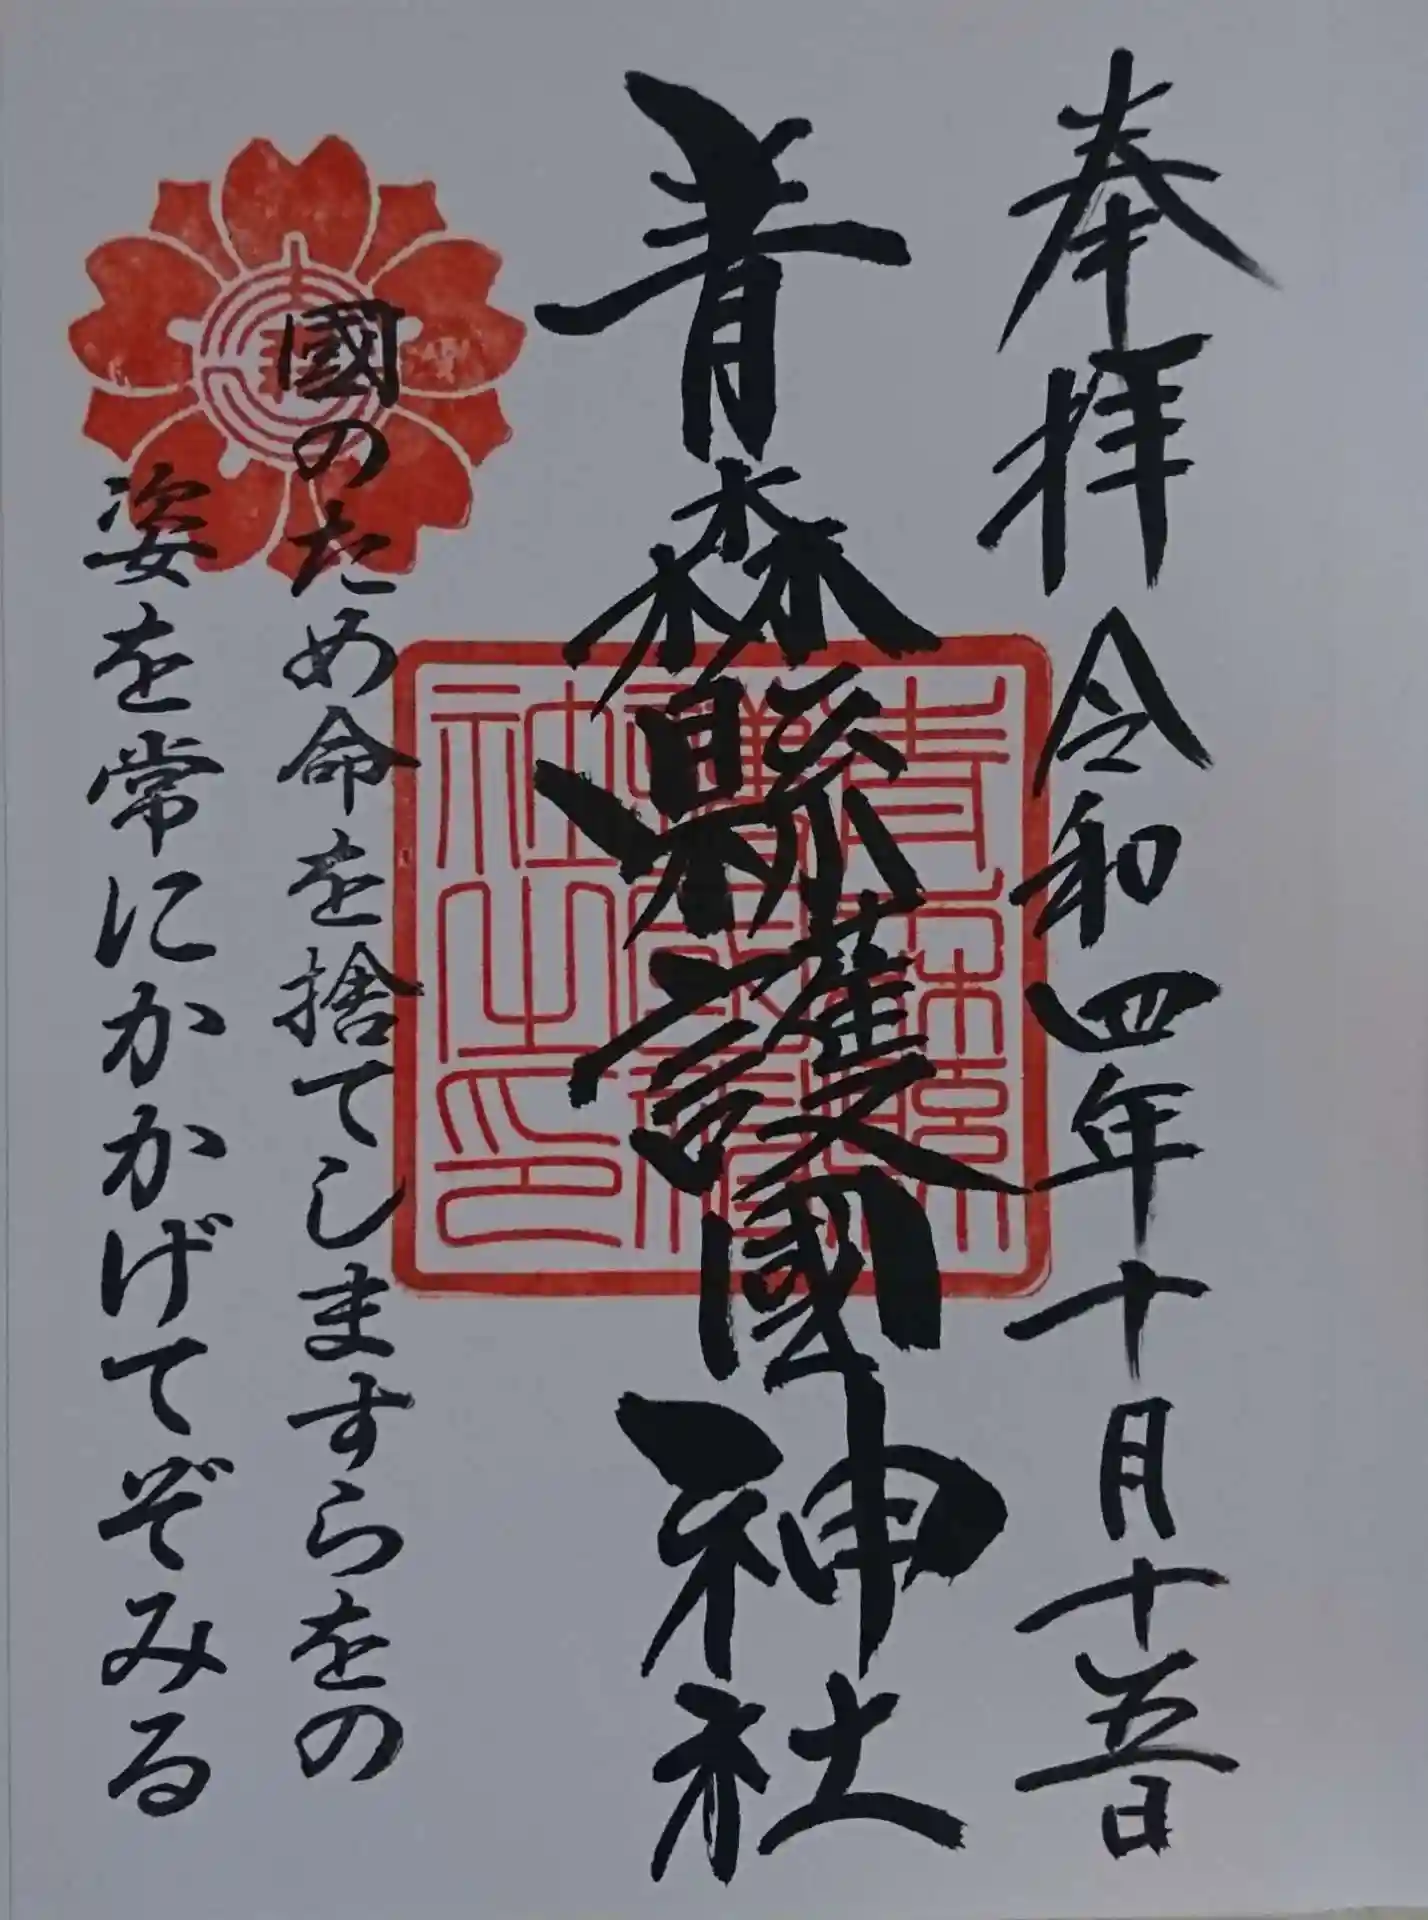 奉拝 令和四年十月十五日
青森縣護國神社
國のため命を捨てしますらをの
姿を常にかかげてぞみる
青森縣護國神社之印